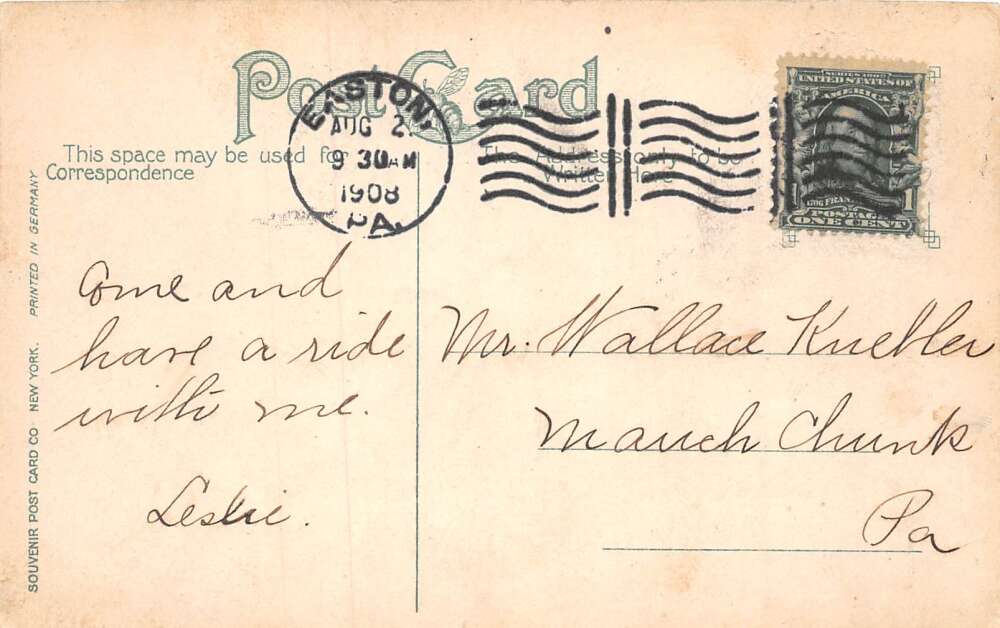 Post Card
This space may be used for
Correspondence
The Address only to be
Written Here
EASTON,
AUG 2
9 30 AM
1908
PA.
SERIES 1902
UNITED STATES OF
AMERICA
1
POSTAGE
ONE CENT
Come and
have a ride
with me.
Leslie.
Mr. Wallace Knebler
Mauch Chunk
Pa
SOUVENIR POST CARD CO. NEW YORK. PRINTED IN GERMANY